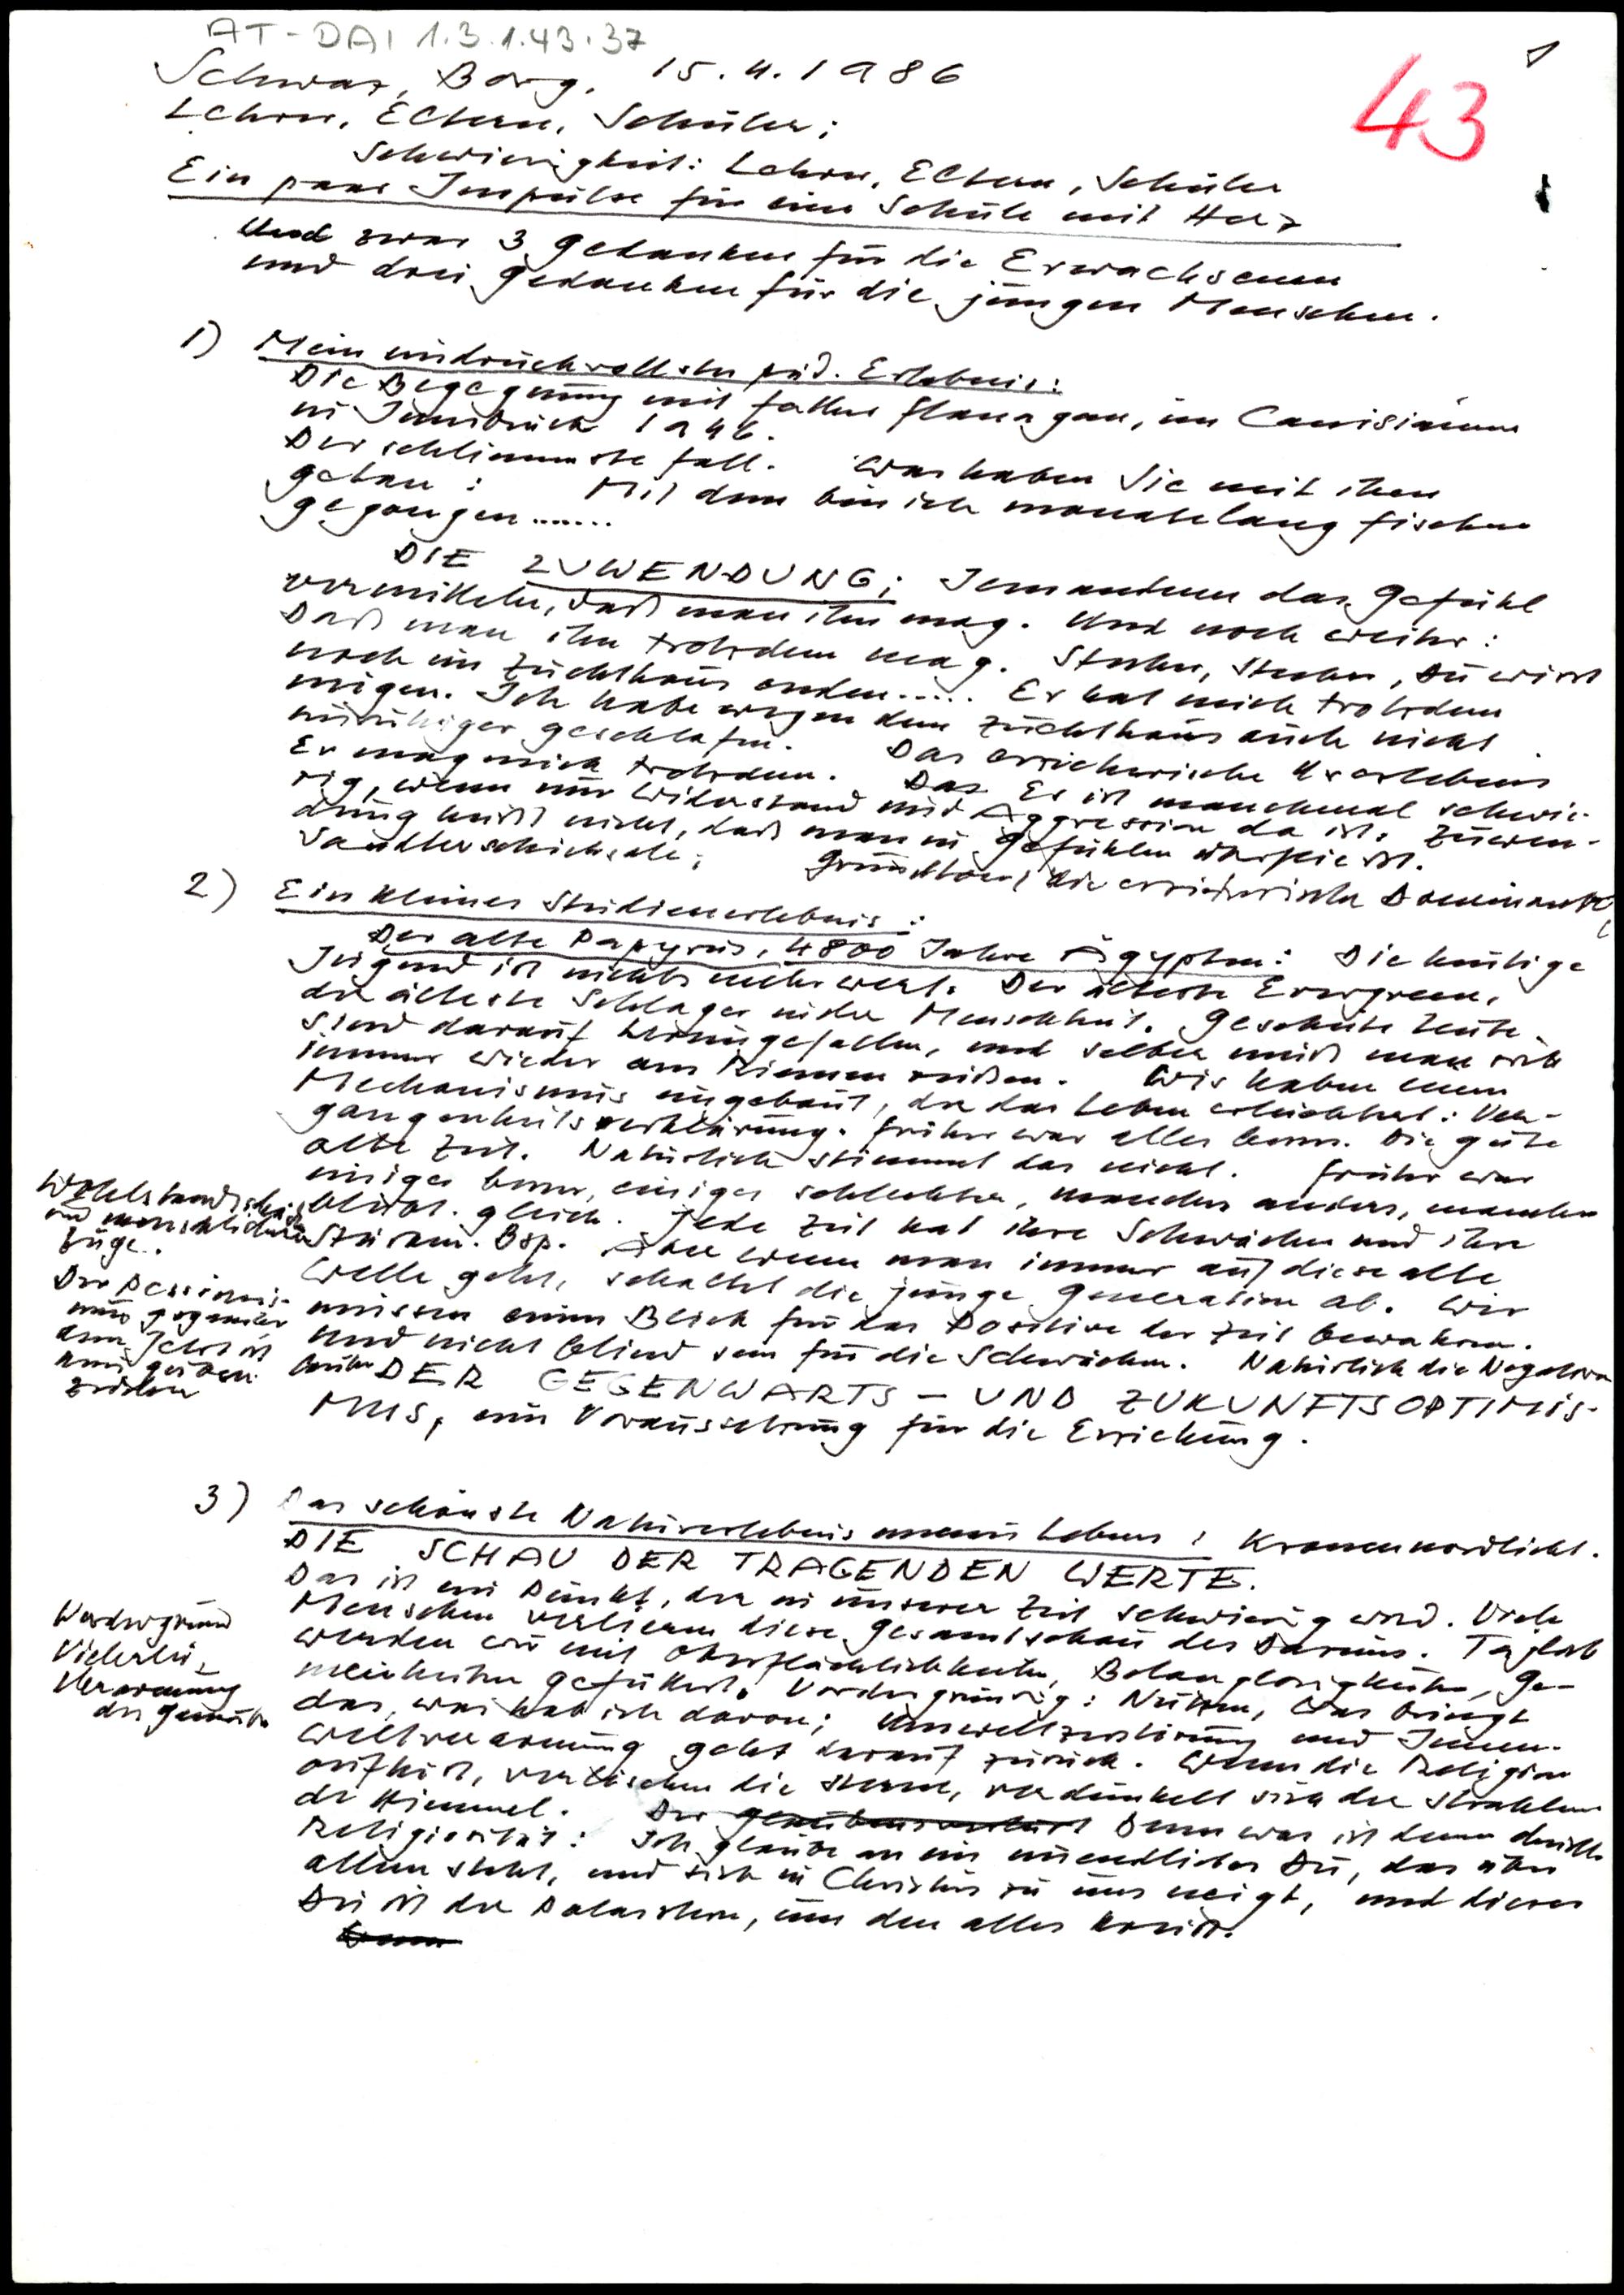 AT-DAI 1.3.1.43.37
1
43
Schwaz, Borg. 15.4.1986
Lehrer, Eltern, Schüler;
Schwierigkeit: Lehrer, Eltern, Schüler
Ein paar Impulse für eine Schule mit Herz
Und zwar 3 Gedanken für die Erwachsenen
und drei Gedanken für die jungen Menschen.
1) Mein eindruckvollstes päd. Erlebnis:
Die Begegnung mit Father Flanagan, im Canisianum
in Innsbruck 1946.
Der schlimmste Fall. Was haben Sie mit ihm
getan: Mit dem bin ich monatelang fischen
gegangen.......
DIE ZUWENDUNG; Jemandem das Gefühl
vermitteln, daß man ihn mag. Und noch weiter:
Daß man ihn trotzdem mag. Stecher, Stecher, Du wirst
noch im Zuchthaus enden..... Er hat mich trotzdem
mögen. Ich habe wegen dem Zuchthaus auch nicht
unruhiger geschlafen. Das erzieherische Urerlebnis
Er mag mich trotzdem. Das Es ist manchmal schwie-
rig, wenn nur Widerstand und Aggression da ist. Zuwen-
dung heißt nicht, daß man in Gefühlen
Sandlerschicksale; Grundton, die erzieherische Dominante
2) Ein kleines Studienerlebnis:
Der alte Papyrus, 4800 Jahre Ägypten: Die heutige
Jugend ist nichts mehr wert. Der älteste Evergreen,
der älteste Schlager in der Menschheit. Gescheite Leute
sind darauf hereingefallen, und selber muß man sich
immer wieder am Riemen reißen. Wir haben einen
Mechanismus eingebaut, der das Leben erleichtert: Ver-
gangenheitsverklärung. Früher war alles besser. Die gute
alte Zeit. Natürlich stimmt das nicht. Früher war
einiges besser, einiges schlechter, manches anders, manches
bleibt gleich. Jede Zeit hat ihre Schwächen und ihre
Stärken. Bsp. Aber wenn man immer auf diese alte
Welle geht, schaltet die junge Generation ab. Wir
müssen einen Blick für das Positive der Zeit bewahren.
und nicht blind sein für die Schwächen. Natürlich die Negativa
DER GEGENWARTS- UND ZUKUNFTSOPTIMIS-
MUS, eine Voraussetzung für die Erziehung.
und menschlichere
Züge.
Der Pessimis-
mus gegenüber
dem Jetzt ist
3) Das schönste Naturerlebnis meines Lebens: Kronennordlicht.
DIE SCHAU DER TRAGENDEN WERTE.
Das ist ein Punkt, der in unserer Zeit schwierig wird. Viele
Menschen verlieren diese Gesamtschau des Daseins. Täglich
werden wir mit Oberflächlichkeiten, Belanglosigkeiten, Ge-
meinheiten gefüttert. Vordergründig: Nutzen, was bringt
das, was hab ich davon; Umweltzerstörung und Innen-
weltverarmung geht darauf zurück. Wenn die Religion
aufhört, verlöschen die Sterne, verdunkelt sich der strahlende
der Himmel. Der Glaubensverlust Denn was ist denn christliche
Religiosität: Ich glaube an ein unendliches Du, das über
allem steht, und sich in Christus zu uns neigt, und dieses
Du ist der Polarstern, um den alles kreist.
Vordergrund
Vielerlei
Verarmung
des Gemütes